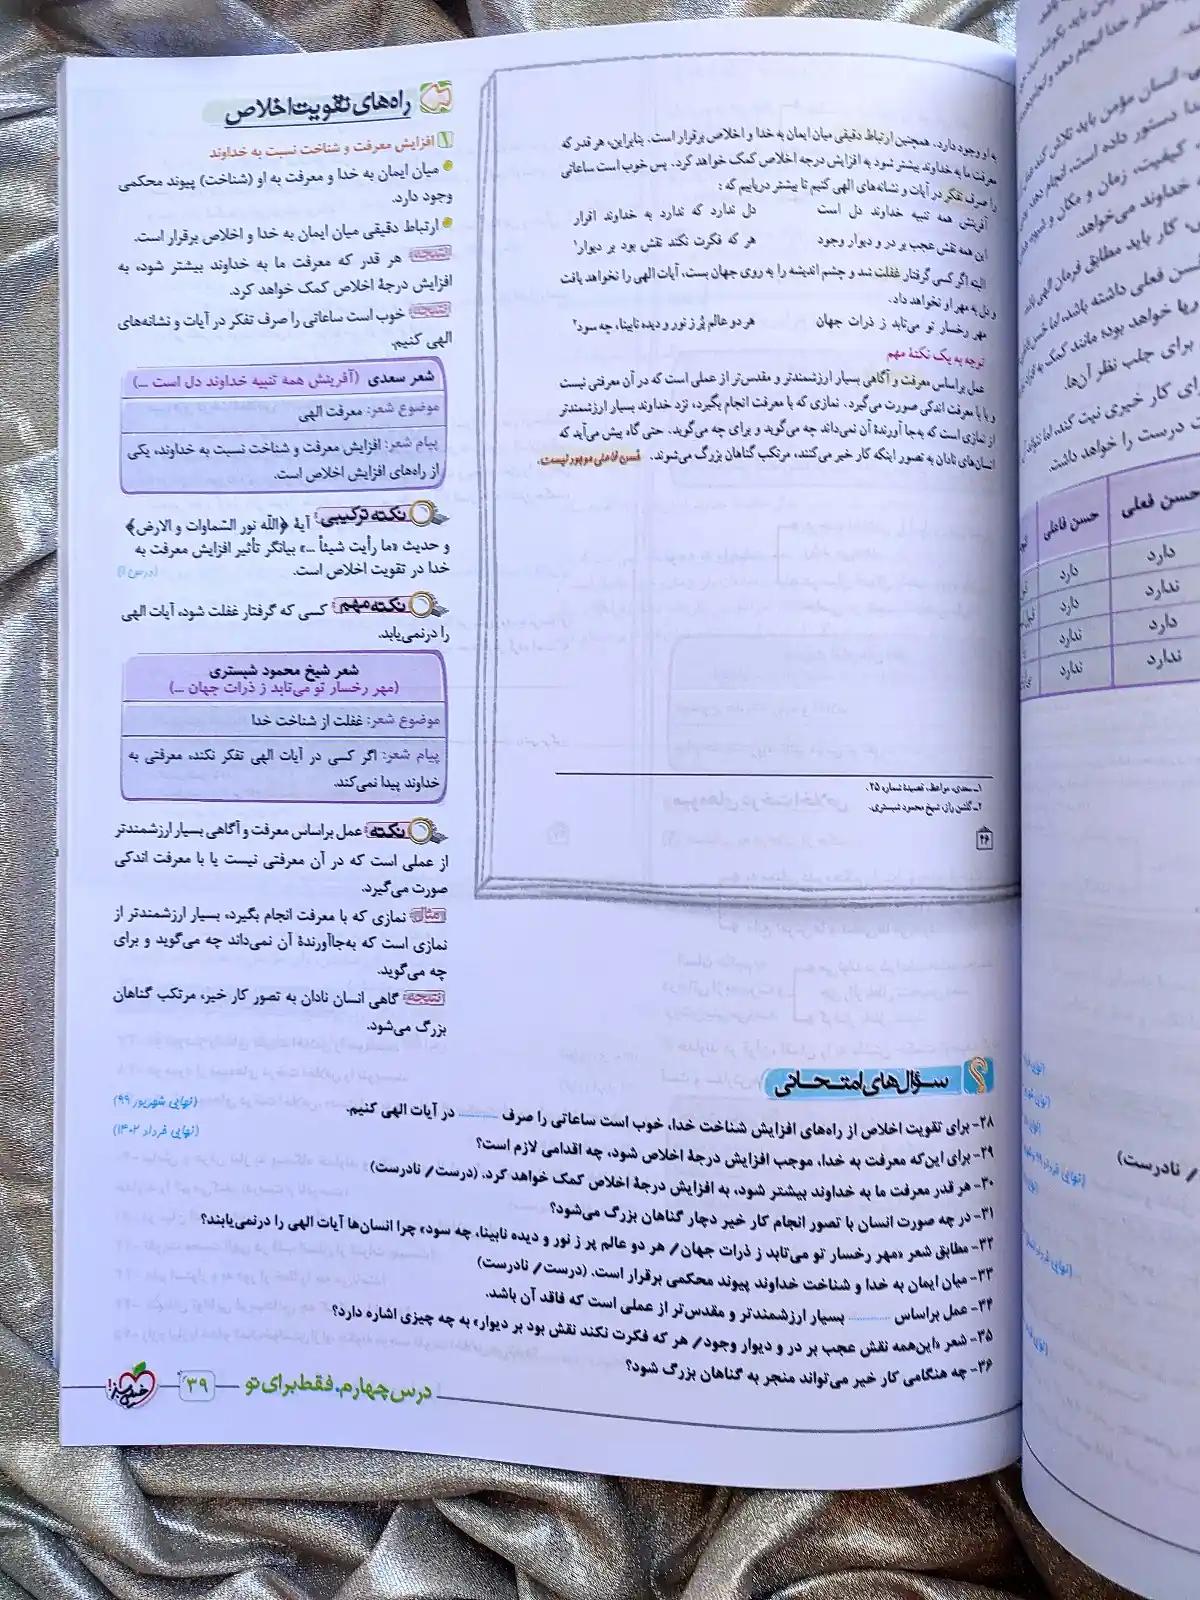 به او وجود دارد. همچنین ارتباط دقیقی میان ایمان به خدا و اخلاص برقرار است. بنابراین، هر قدر که
معرفت ما به خداوند بیشتر شود به افزایش درجه اخلاص کمک خواهد کرد. پس خوب است ساعاتی
را صرف تفکر در آیات و نشانه‌های الهی کنیم تا بیشتر دریابیم که :
آفرینش همه تنبیه خداوند دل است دل ندارد که ندارد به خداوند اقرار
این همه نقش عجب بر در و دیوار وجود هر که فکرت نکند نقش بود بر دیوار۱
البته اگر کسی گرفتار غفلت شد و چشم اندیشه را به روی جهان بست، آیات الهی را نخواهد یافت
و دل به مهر او نخواهد داد.
مهر رخسار تو می‌تابد ز ذرات جهان هر دو عالم پُر ز نور و دیده نابینا، چه سود۲
توجه به یک نکتهٔ مهم
عمل براساس معرفت و آگاهی بسیار ارزشمندتر و مقدس‌تر از عملی است که در آن معرفتی نیست
و یا با معرفت اندکی صورت می‌گیرد. نمازی که با معرفت انجام بگیرد، نزد خداوند بسیار ارزشمندتر
از نمازی است که به‌جا آورندهٔ آن نمی‌داند چه می‌گوید و برای چه می‌گوید. حتی گاه پیش می‌آید که
انسان‌های نادان به تصور اینکه کار خیر می‌کنند، مرتکب گناهان بزرگ می‌شوند. حُسن فاعلی موجود نیست.
۱ـ سعدی، مواعظ، قصیدهٔ شماره ۲۵.
۲ـ گلشن راز، شیخ محمود شبستری.
۴۶
راه‌های تقویت اخلاص
۱ افزایش معرفت و شناخت نسبت به خداوند
میان ایمان به خدا و معرفت به او (شناخت) پیوند محکمی
وجود دارد.
ارتباط دقیقی میان ایمان به خدا و اخلاص برقرار است.
نتیجه هر قدر که معرفت ما به خداوند بیشتر شود، به
افزایش درجهٔ اخلاص کمک خواهد کرد.
نتیجه خوب است ساعاتی را صرف تفکر در آیات و نشانه‌های
الهی کنیم.
شعر سعدی (آفرینش همه تنبیه خداوند دل است ...)
موضوع شعر: معرفت الهی
پیام شعر: افزایش معرفت و شناخت نسبت به خداوند، یکی
از راه‌های افزایش اخلاص است.
نکته ترکیبی آیهٔ ﴿اللّه نور السّماوات و الارض﴾
و حدیث «ما رأیت شیئاً ...» بیانگر تأثیر افزایش معرفت به
خدا در تقویت اخلاص است. (درس ۱)
نکته مهم کسی که گرفتار غفلت شود، آیات الهی
را درنمی‌یابد.
شعر شیخ محمود شبستری
(مهر رخسار تو می‌تابد ز ذرات جهان ...)
موضوع شعر: غفلت از شناخت خدا
پیام شعر: اگر کسی در آیات الهی تفکر نکند، معرفتی به
خداوند پیدا نمی‌کند.
نکته عمل براساس معرفت و آگاهی بسیار ارزشمندتر
از عملی است که در آن معرفتی نیست یا با معرفت اندکی
صورت می‌گیرد.
مثال نمازی که با معرفت انجام بگیرد، بسیار ارزشمندتر از
نمازی است که به‌جاآورندهٔ آن نمی‌داند چه می‌گوید و برای
چه می‌گوید.
نتیجه گاهی انسان نادان به تصور کار خیر، مرتکب گناهان
بزرگ می‌شود.
سؤال‌های امتحانی
۲۸- برای تقویت اخلاص از راه‌های افزایش شناخت خدا، خوب است ساعاتی را صرف ............ در آیات الهی کنیم. (نهایی شهریور ۹۹)
۲۹- برای این‌که معرفت به خدا، موجب افزایش درجهٔ اخلاص شود، چه اقدامی لازم است؟ (نهایی خرداد ۱۴۰۲)
۳۰- هر قدر معرفت ما به خداوند بیشتر شود، به افزایش درجهٔ اخلاص کمک خواهد کرد. (درست/ نادرست)
۳۱- در چه صورت انسان با تصور انجام کار خیر دچار گناهان بزرگ می‌شود؟
۳۲- مطابق شعر «مهر رخسار تو می‌تابد ز ذرات جهان/ هر دو عالم پر ز نور و دیده نابینا، چه سود» چرا انسان‌ها آیات الهی را درنمی‌یابند؟
۳۳- میان ایمان به خدا و شناخت خداوند پیوند محکمی برقرار است. (درست/ نادرست)
۳۴- عمل براساس ............ بسیار ارزشمندتر و مقدس‌تر از عملی است که فاقد آن باشد.
۳۵- شعر «این‌همه نقش عجب بر در و دیوار وجود/ هر که فکرت نکند نقش بود بر دیوار» به چه چیزی اشاره دارد؟
۳۶- چه هنگامی کار خیر می‌تواند منجر به گناهان بزرگ شود؟
درس چهارم. فقط برای تو
۳۹
خیلی سبز!
حسن فعلی حسن فاعلی
دارد دارد
ندارد دارد
دارد ندارد
ندارد ندارد
/ نادرست)